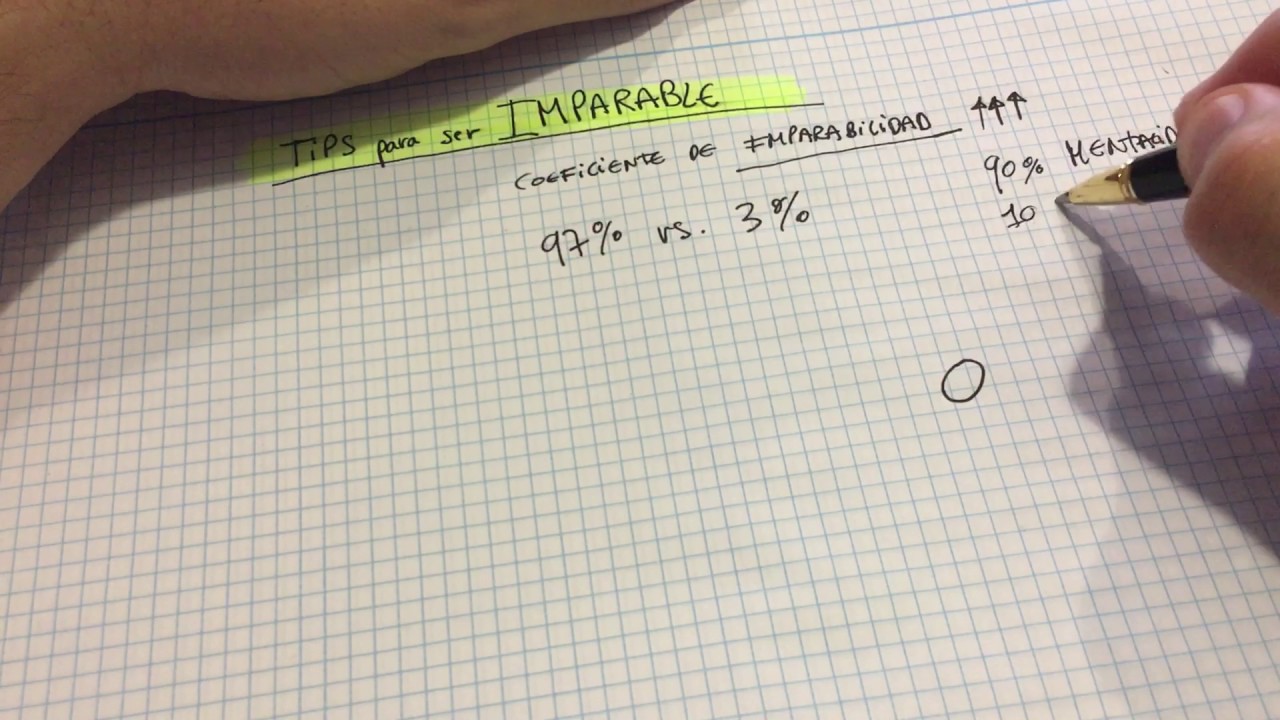 TiPS para ser IMPARABLE
COEFiCiENTE DE IMPARABiLiDAD ↑↑↑
97% vs. 3%
90%
10